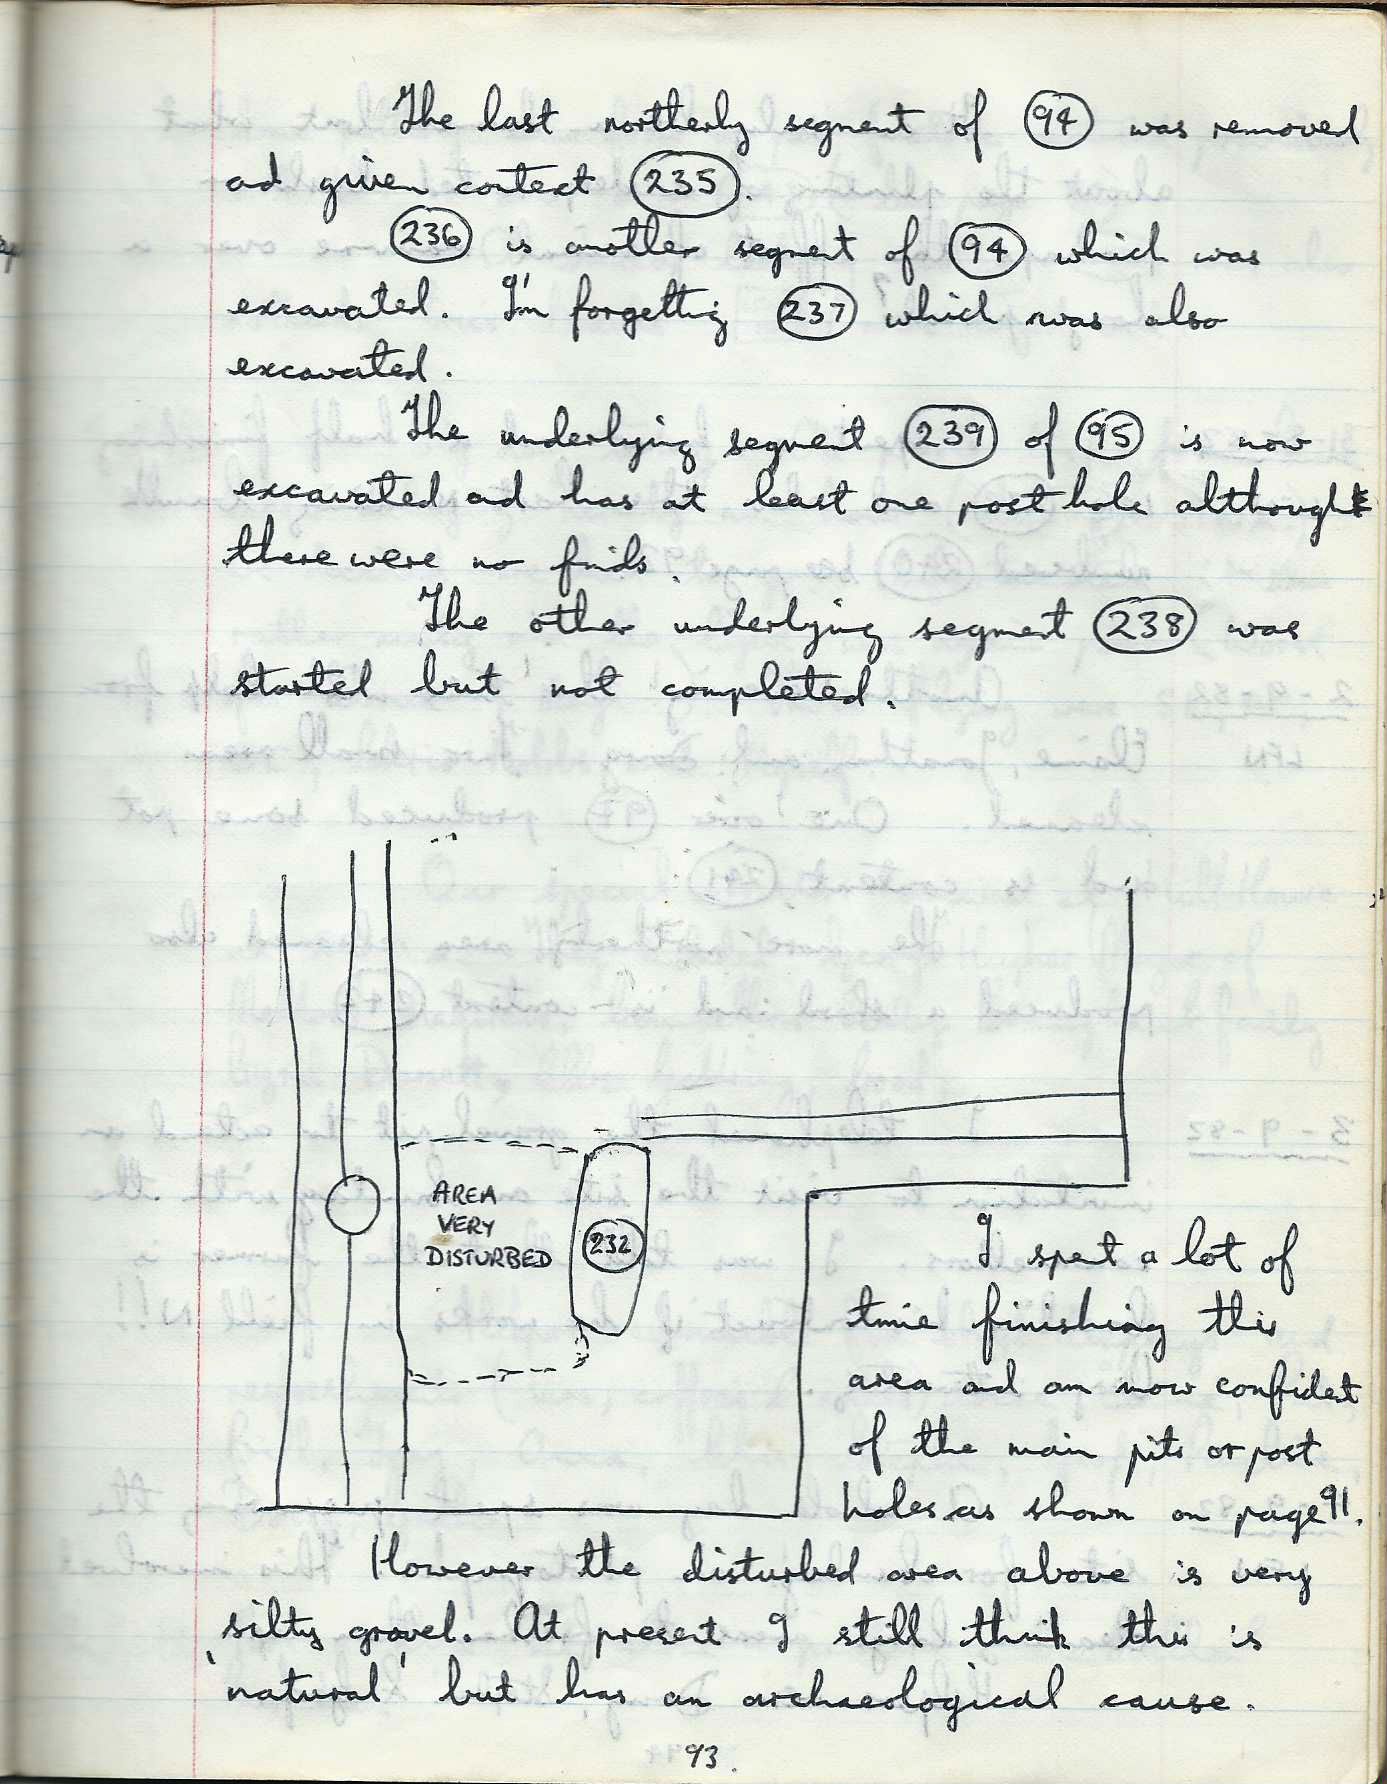 The last northerly segment of 94 was removed
ad given context 235.
236 is another segment of 94 which was
excavated. I'm forgetting 237 which was also
excavated.
The underlying segment 239 of 95 is now
excavated ad has at least one post hole although
there were no finds.
The other underlying segment 238 was
started but not completed.
AREA
VERY
DISTURBED
232
I spent a lot of
time finishing this
area and am now confident
of the main pits or post
holes as shown on page 91.
However the disturbed area above is very
silty gravel. At present I still think this is
'natural' but has an archaeological cause.
93.